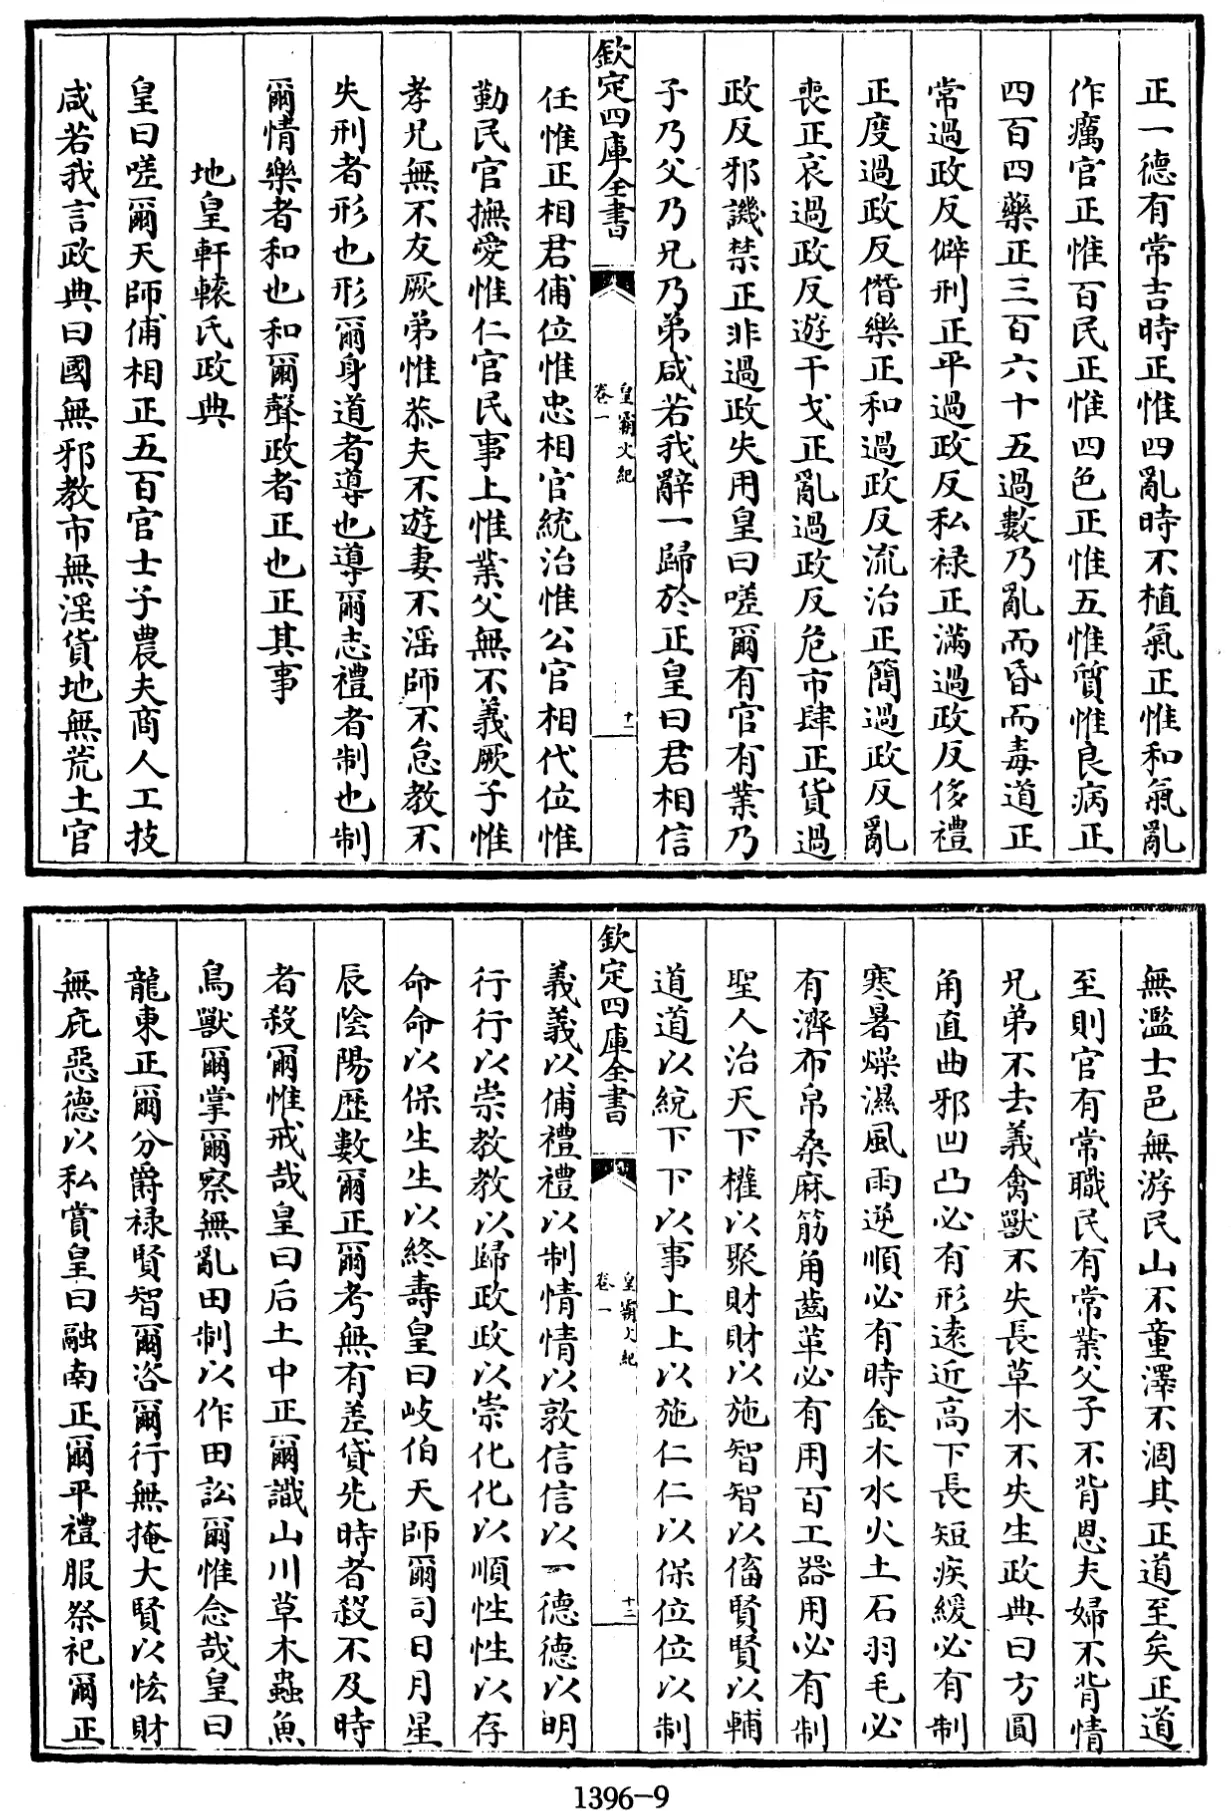 正一德有常吉時正惟四亂時不植氣正惟和氣亂
作癘官正惟百民正惟四色正惟五惟質惟良病正
四百四藥正三百六十五過數乃亂而昏而毒道正
常過政反僻刑正平過政反私禄正滿過政反侈禮
正度過政反僭樂正和過政反流治正簡過政反亂
喪正哀過政反遊干戈正亂過政反危市肆正貨過
政反邪譏禁正非過政失用皇曰嗟爾有官有業乃
子乃父乃兄乃弟咸若我辭一歸於正皇曰君相信
欽定四庫全書
皇霸文紀
卷一
十二
任惟正相君俌位惟忠相官統治惟公官相代位惟
勤民官撫愛惟仁官民事上惟業父無不義厥子惟
孝兄無不友厥弟惟恭夫不遊妻不滛師不怠教不
失刑者形也形爾身道者導也導爾志禮者制也制
爾情樂者和也和爾聲政者正也正其事
地皇軒轅氏政典
皇曰嗟爾天師俌相正五百官士子農夫商人工技
咸若我言政典曰國無邪教市無淫貨地無荒土官
無濫士邑無游民山不童澤不涸其正道至矣正道
至則官有常職民有常業父子不背恩夫婦不背情
兄弟不去義禽獸不失長草木不失生政典曰方圓
角直曲邪凹凸必有形遠近高下長短疾緩必有制
寒暑燥濕風雨逆順必有時金木水火土石羽毛必
有濟布帛桑麻筋角齒革必有用百工器用必有制
聖人治天下權以聚財財以施智智以畜賢賢以輔
道道以統下下以事上上以施仁仁以保位位以制
欽定四庫全書
皇霸文紀
卷一
十二
義義以俌禮禮以制情情以敦信信以一德德以明
行行以崇教教以歸政政以崇化化以順性性以存
命命以保生生以終壽皇曰岐伯天師爾司日月星
辰陰陽歴數爾正爾考無有差貸先時者殺不及時
者殺爾惟戒哉皇曰后土中正爾識山川草木蟲魚
鳥獸爾掌爾察無亂田制以作田訟爾惟念哉皇曰
龍東正爾分爵禄賢智爾咨爾行無掩大賢以恡財
無庇惡德以私賞皇曰融南正爾平禮服祭祀爾正
1396-9